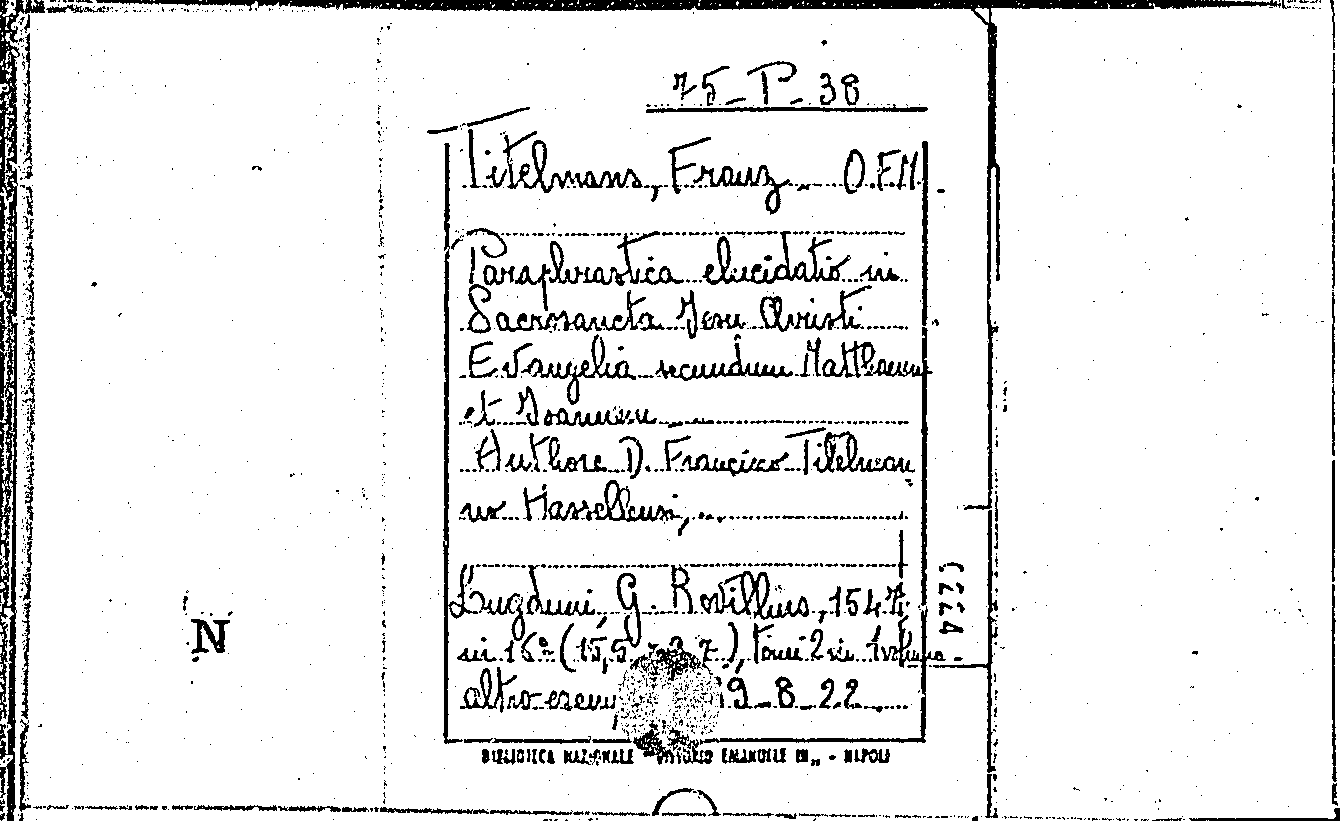 75-P-38
Titelmans, Franz O.F.M.
Paraphrastica elucidatio in
Sacrosancta Jesu Christi
Evangelia secundum Matthaeum
et Joannem
Authore D. Francisco Titelman
no Hassellensi, ...
Lugduni, G. Rovillius, 1547
in 16º (15,5 7), Tomi 2 in 1 volume
altro esem 19-8-22
BIBLIOTECA NAZIONALE "VITTORIO EMANUELE III" - NAPOLI
N